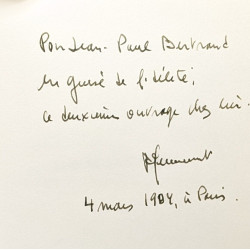 Pour Jean-Paul Bertrand
en guise de fidélité,
ce deuxième ouvrage chez lui.
4 mars 1984, à Paris.